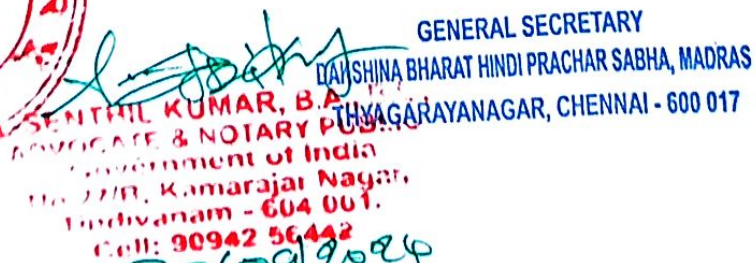 GENERAL SECRETARY
DAKSHINA BHARAT HINDI PRACHAR SABHA, MADRAS
THYAGARAYANAGAR, CHENNAI - 600 017
SENTHIL KUMAR, B.A
ADVOCATE & NOTARY PUBLIC
Government of India
Kamarajar Nagar,
Tindivanam - 604 001.
Cell: 90942 56442